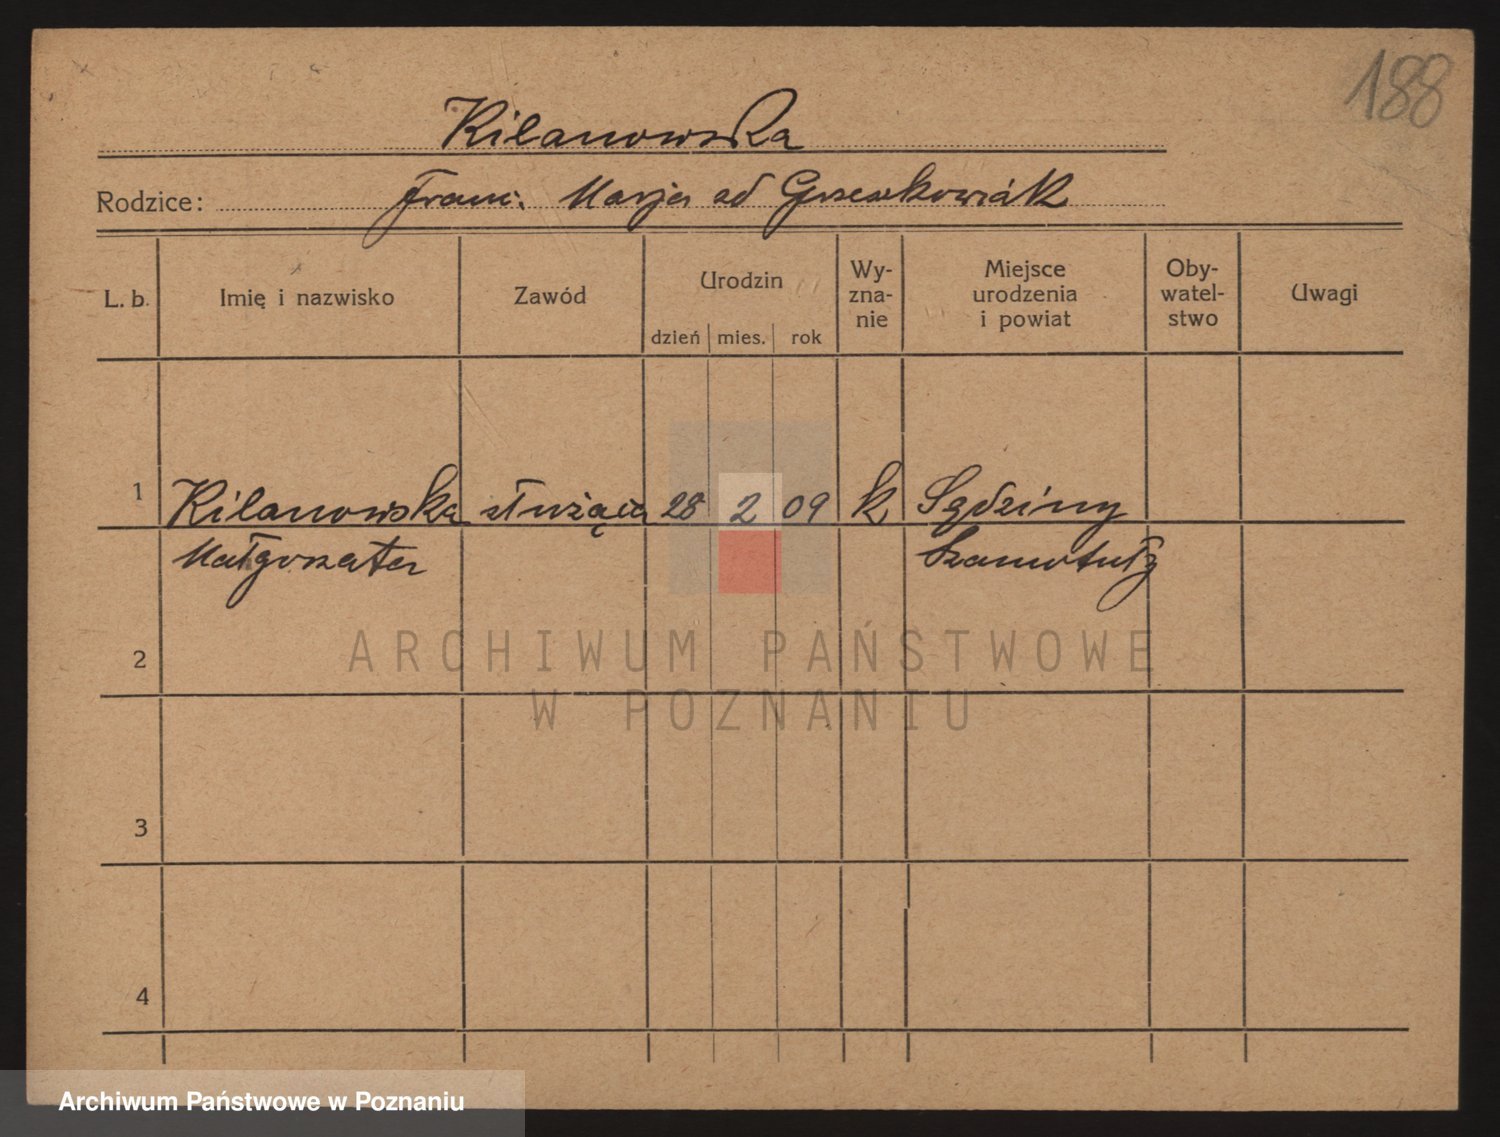 188
Kilanowska
Rodzice: Franc. Marja od Grzeszkowiak
L. b. Imię i nazwisko Zawód Urodzin dzień mies. rok Wy- zna- nie Miejsce urodzenia i powiat Oby- watel- stwo Uwagi
1 Kilanowska służąca 28 2 09 k Sędziny
Małgorzata Szamotuły
2
ARCHIWUM PAŃSTWOWE
W POZNANIU
3
4
Archiwum Państwowe w Poznaniu